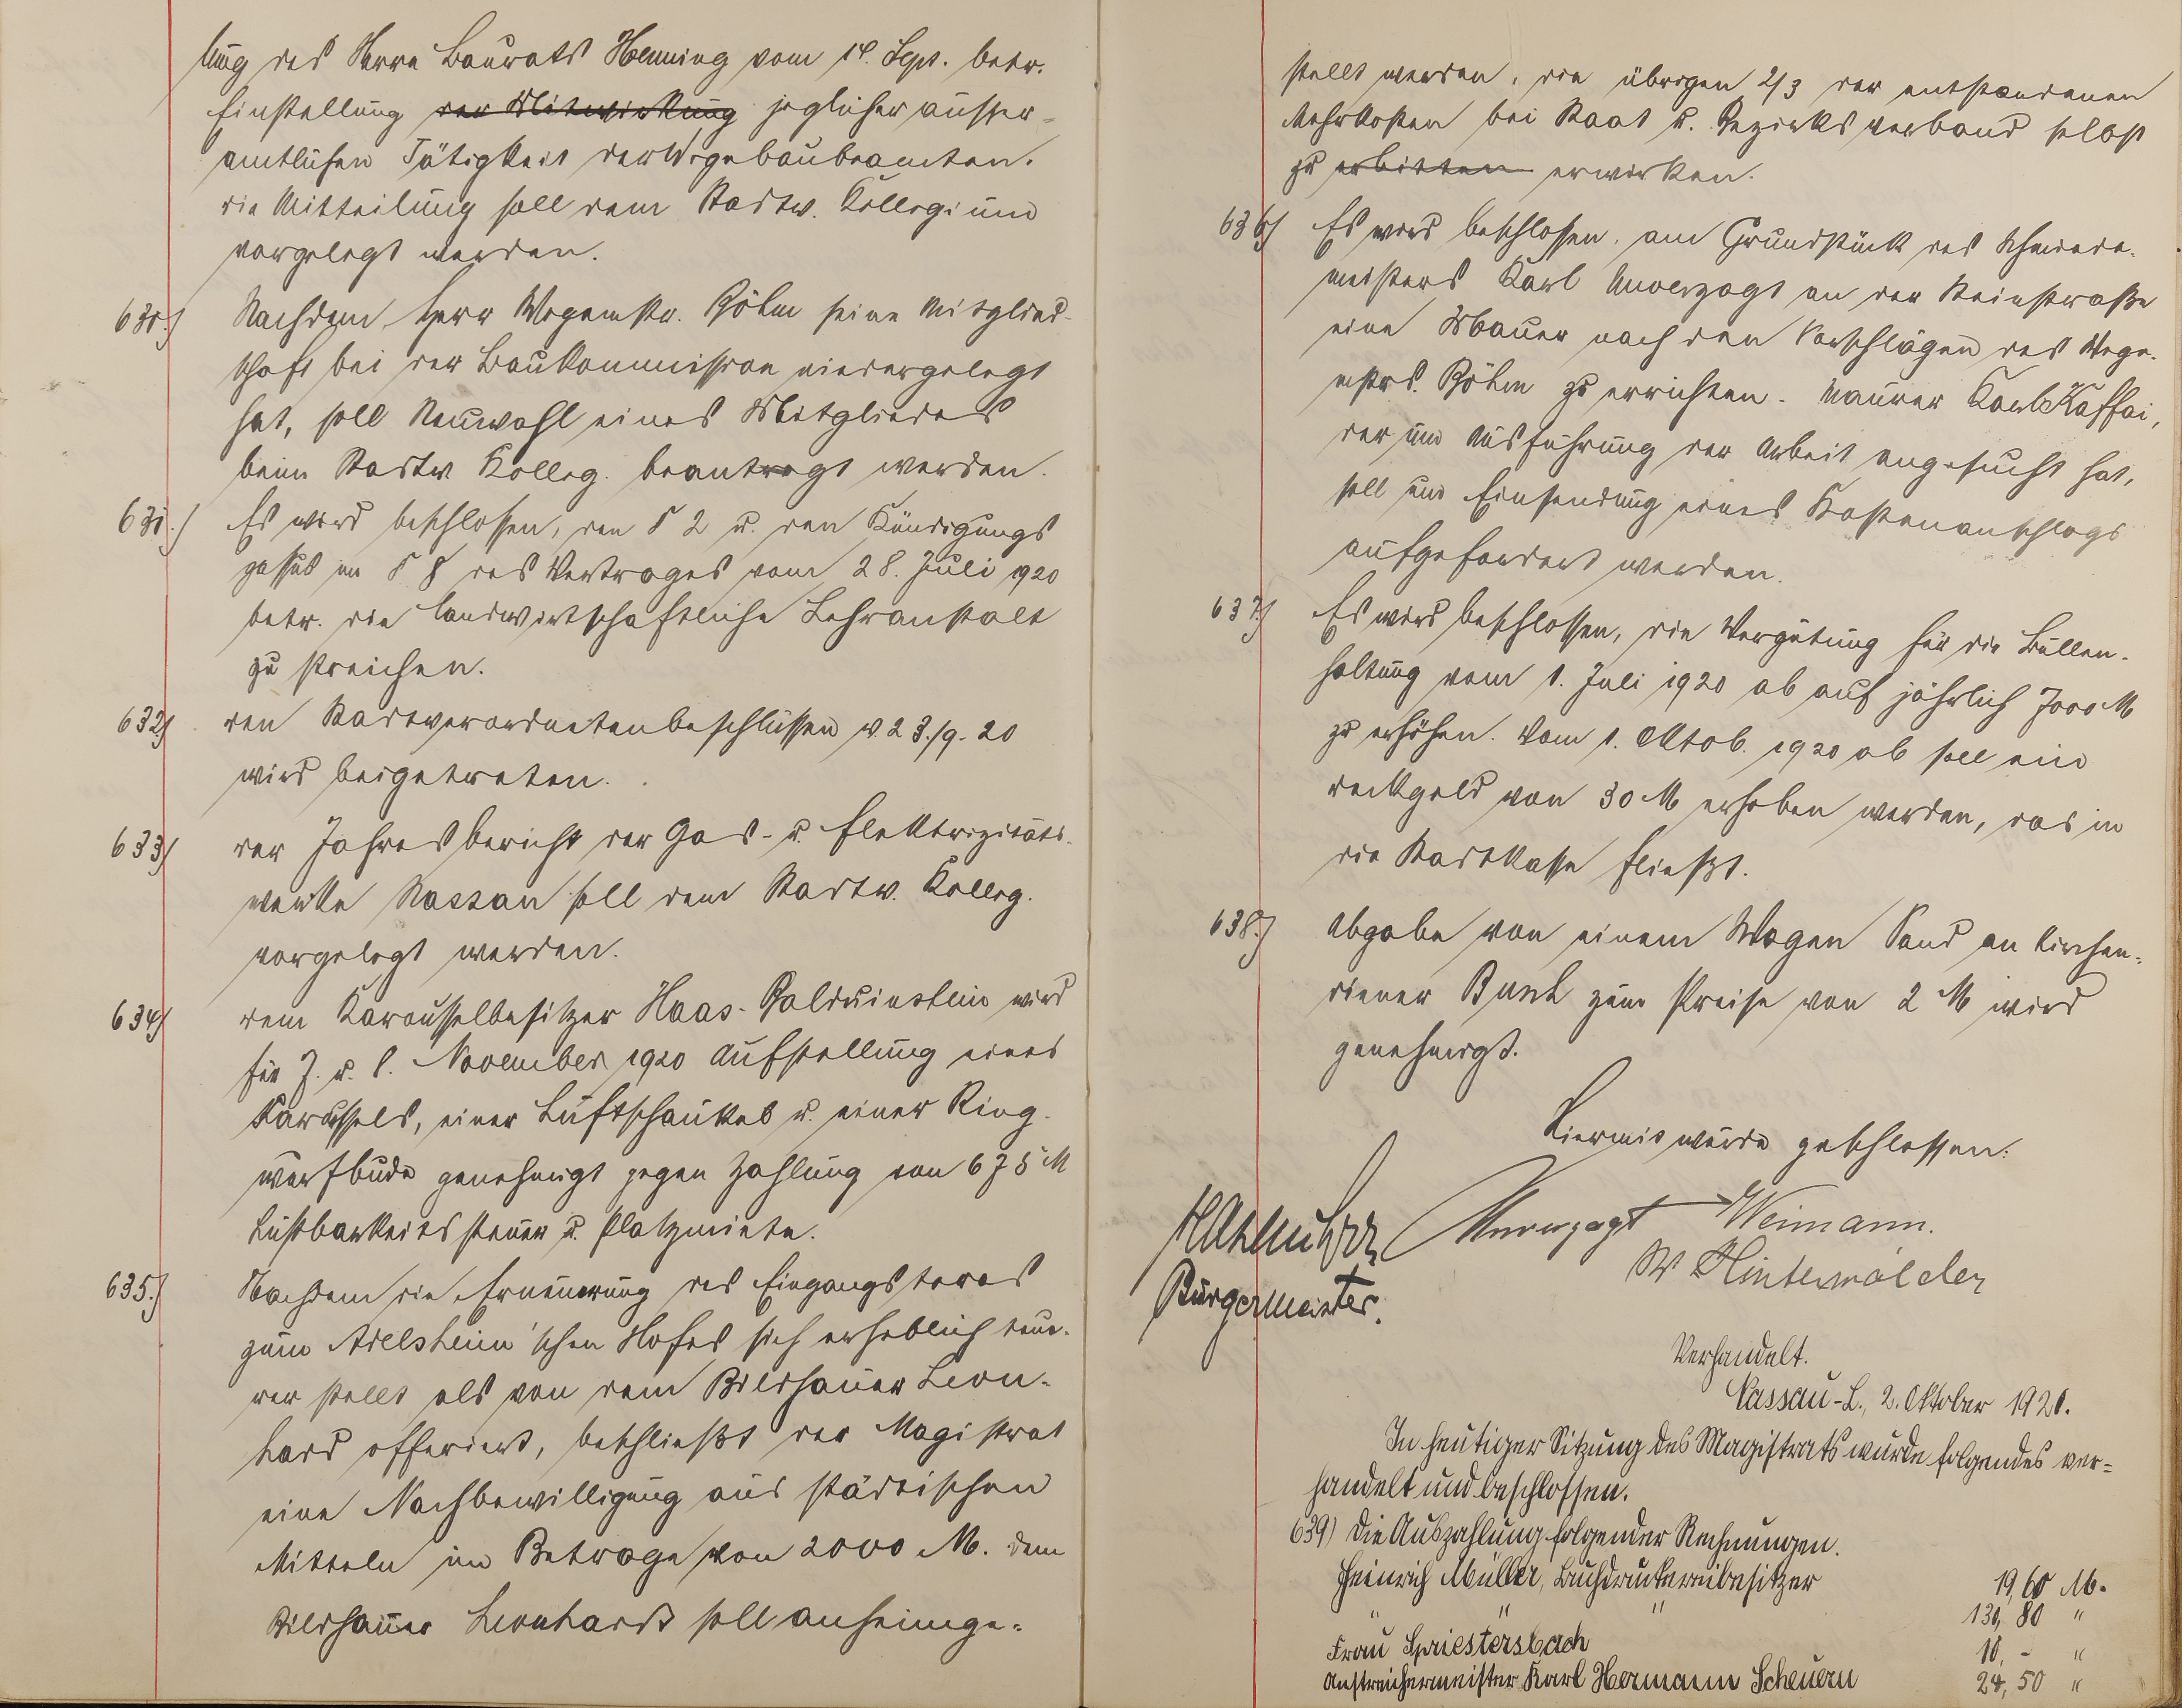 lung des Herrn Baurats Henning vom 14. Sept. betr.
Einstellung der Mitwirkung jeglicher ausser-
amtlichen Tätigkeit der Wegebaubeamten.
die Mitteilung soll dem Stadtv. Kollegium
vorgelegt werden.
630.) Nachdem Herr Wegemstr. Böhm seine Mitglied-
schaft bei der Baukommission niedergelegt
hat, soll Neuwahl eines Mitgliedes
beim Stadtv. Kolleg. beantragt werden.
631.) Es wird beschlossen, den § 2 u. den Kündigungs
passus im § 8 des Vertrages vom 28. Juli 1920
betr. die landwirtschaftliche Lehranstalt
zu streichen.
632.) den Stadtverordnetenbeschlüssen v. 23./9. 20
wird beigetreten.
633) der Jahresbericht der Gas- u. Elektrizitäts-
werke Nassau soll dem Stadtv. Kolleg.
vorgelegt werden.
634) dem Karousselbesitzer Haas-Balduinstein wird
für 7. u. 8. November 1920 Aufstellung eines
Karussels, einer Luftschaukel u. einer Ring-
wurfbude genehmigt gegen Zahlung von 675 M
Lustbarkeitssteuer u. Platzmiete.
635.) Nachdem die Erneuerung des Eingangstores
zum Adelsheim'schen Hofes sich erheblich teue-
rer stellt als von dem Bildhauer Leon-
hard offeriert, beschließt der Magistrat
eine Nachbewilligung aus städtischen
Mitteln im Betrage von 2000 M. dem
Bildhauer Leonhard soll anheimge-
stellt werden, die übrigen 2/3 der entstandenen
Mehrkosten bei Staat u. Bezirksverband selbst
zu erbitten erwirken.
636) Es wird beschlossen, am Grundstück des Schmiede-
meisters Karl Unverzagt an der Steinstraße
eine Mauer nach den Vorschlägen des Wege-
mstrs. Böhm zu errichten. Maurer Karl Kaffai,
der um Ausführung der Arbeit angesucht hat,
soll um Einsendung eines Kostenanschlags
aufgefordert werden.
637.) Es wird beschlossen, die Vergütung für die Bullen-
haltung vom 1. Juli 1920 ab auf jährlich 7000 M
zu erhöhen. Vom 1. Oktob. 1920 ab soll ein
deckgeld von 30 M erhoben werden, das in
die Stadtkasse fließt.
638.) Abgabe von einem Wagen Sand an Kirchen-
diener Bunk zum Preise von 2 M wird
genehmigt.
Hiermit wurde geschlossen.
Unverzagt Weimann.
Bürgermeister. W Hinterwälder
Verhandelt.
Nassau-L., 2. Oktober 1920.
In heutiger Sitzung des Magistrats wurde folgendes ver-
handelt und beschlossen.
639) Die Auszahlung folgender Rechnungen.
Heinrich Müller, Buchdruckereibesitzer 19,60 M.
" " " 130,80 "
Frau Spriestersbach 10,- "
Anstreichermeister Karl Hermann Scheuern 24,50 "